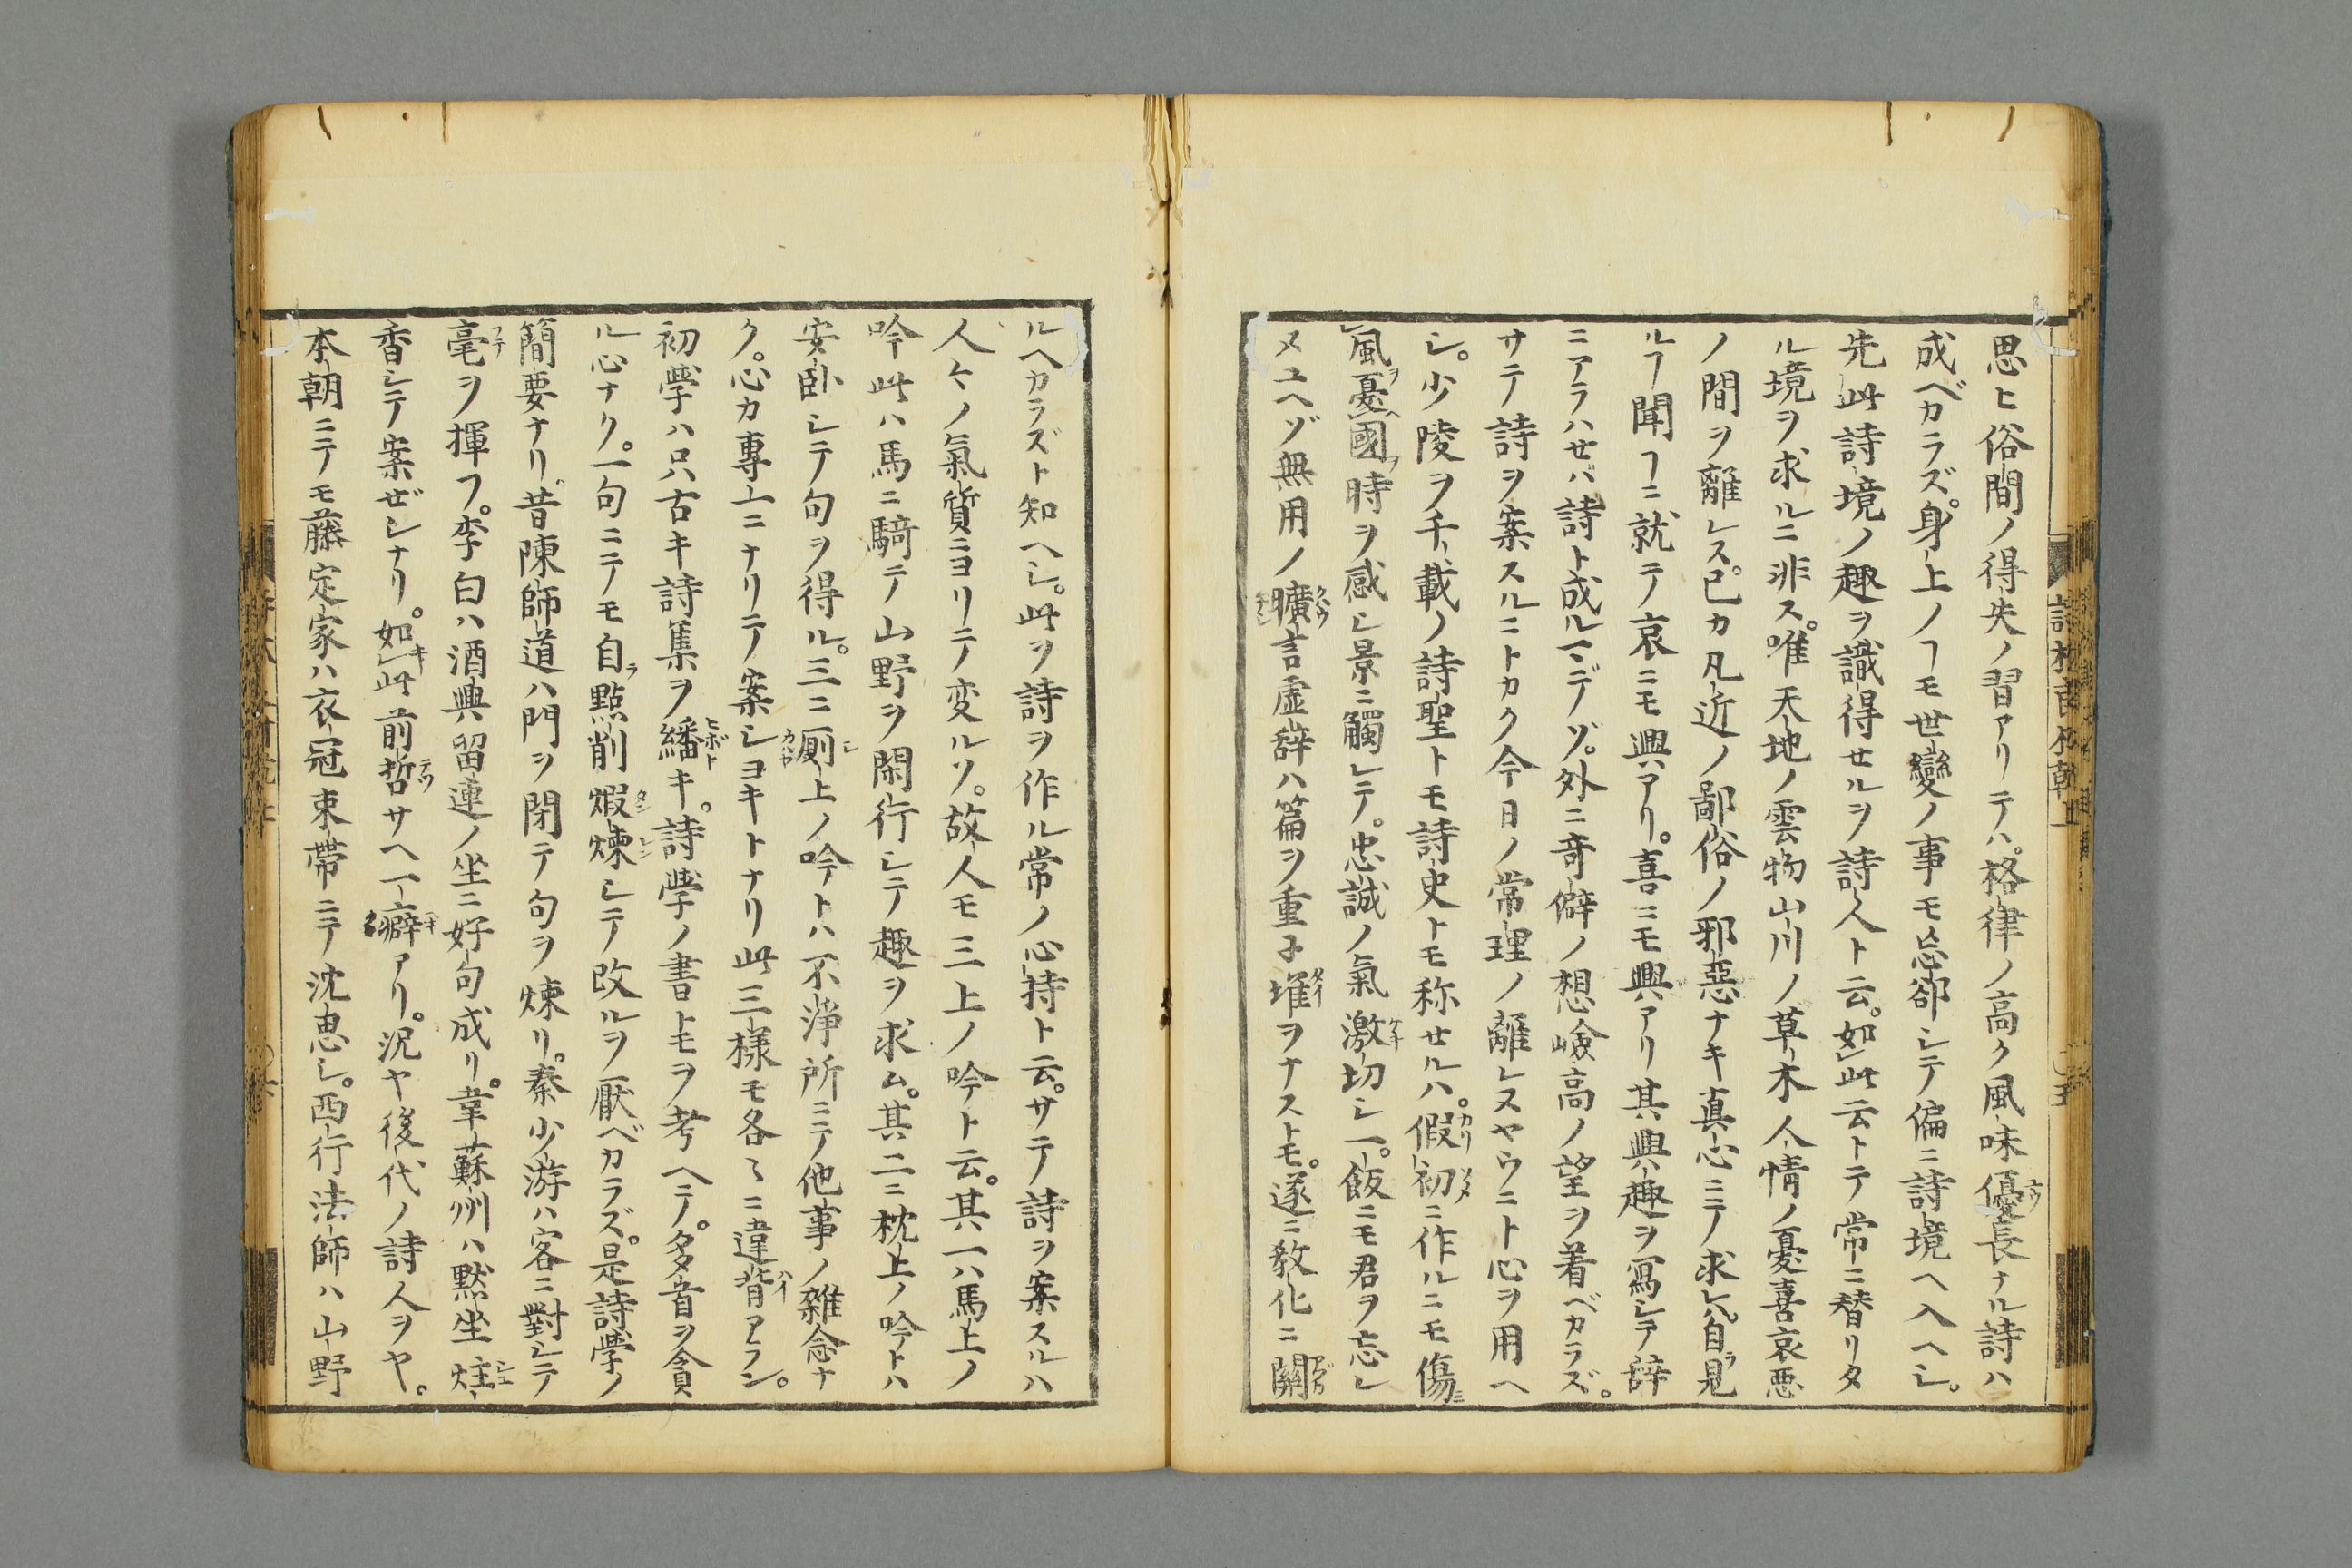 思ヒ俗間ノ得失ノ習アリテハ。格律ノ高ク風味優長ナル詩ハ
成ベカラズ。身上ノヿモ世變ノ事モ忘卻シテ偏ニ詩境ヘ入ヘシ。
先此詩境ノ趣ヲ識得セルヲ詩人ト云。如此云トテ常ニ替リタ
ル境ヲ求ルニ非ス。唯天地ノ雲物山川ノ草木人情ノ憂喜哀悪
ノ間ヲ離レス。已カ凡近ノ鄙俗ノ邪惡ナキ真心ニテ求レハ。自見
ルヿ聞ヿニ就テ哀ニモ興アリ。喜ニモ興アリ其興趣ヲ寫シテ辞
ニアラハセバ詩ト成ルマデゾ。外ニ奇僻ノ想嶮高ノ望ヲ着ベカラズ。
サテ詩ヲ案スルニトカク今日ノ常理ノ離レヌヤウニト心ヲ用ヘ
シ。少陵ヲ千載ノ詩聖トモ詩史トモ称セルハ。假初ニ作ルニモ傷
風憂國時ヲ感シ景ニ觸レテ。忠誠ノ氣激切シ一飯ニモ君ヲ忘レ
ヌユヘゾ無用ノ曠言虚辞ハ篇ヲ重子堆ヲナストモ。遂ニ教化ニ關
ルヘカラズト知ヘシ。此ヲ詩ヲ作ル常ノ心持ト云。サテ詩ヲ案スルハ
人々ノ氣質ニヨリテ変ルソ。故人モ三上ノ吟ト云。其一ハ馬上ノ
吟此ハ馬ニ騎テ山野ヲ閑行シテ趣ヲ求ム。其二ニ枕上ノ吟トハ
安卧シテ句ヲ得ル。三ニ厠上ノ吟トハ不淨所ニテ他事ノ雑念ナ
ク。心カ專一ニナリテ案シヨキトナリ此三樣モ各〻ニ違背アラン。
初學ハ只古キ詩集ヲ繙キ。詩學ノ書トモヲ考ヘテ。多音ヲ貪
ル心ナク。一句ニテモ自點削煅煉シテ改ルヲ厭ベカラズ。是詩學ノ
簡要ナリ。昔陳師道ハ門ヲ閉テ句ヲ煉リ。秦少游ハ客ニ對シテ
毫ヲ揮フ。李白ハ酒興留連ノ坐ニ好句成リ。韋蘇州ハ黙坐炷
香シテ案ゼシナリ。如此前哲サヘ一癖アリ。況ヤ後代ノ詩人ヲヤ。
本朝ニテモ藤定家ハ衣冠束帶ニテ沈思シ。西行法師ハ山野